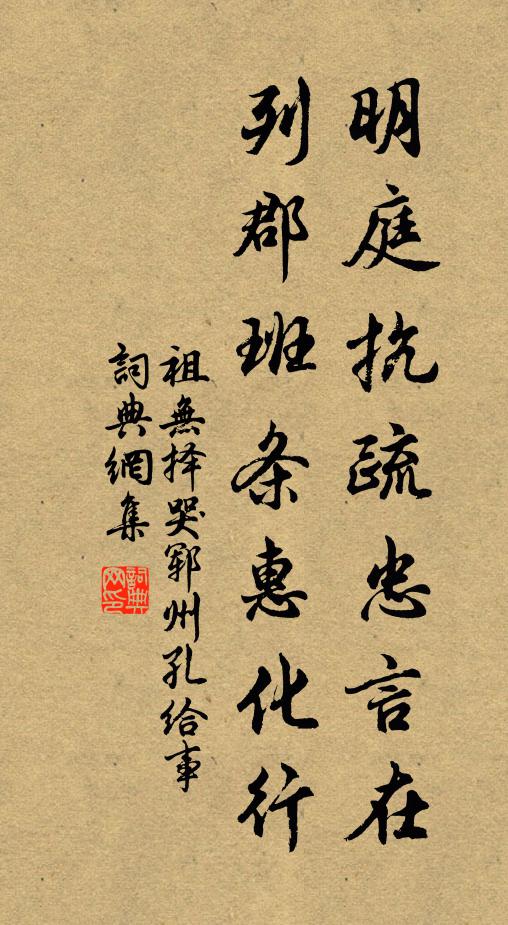 明庭抗疏忠言在
列郡班条惠化行
祖無择哭郓州孔给事
詞典網集
詞典网印